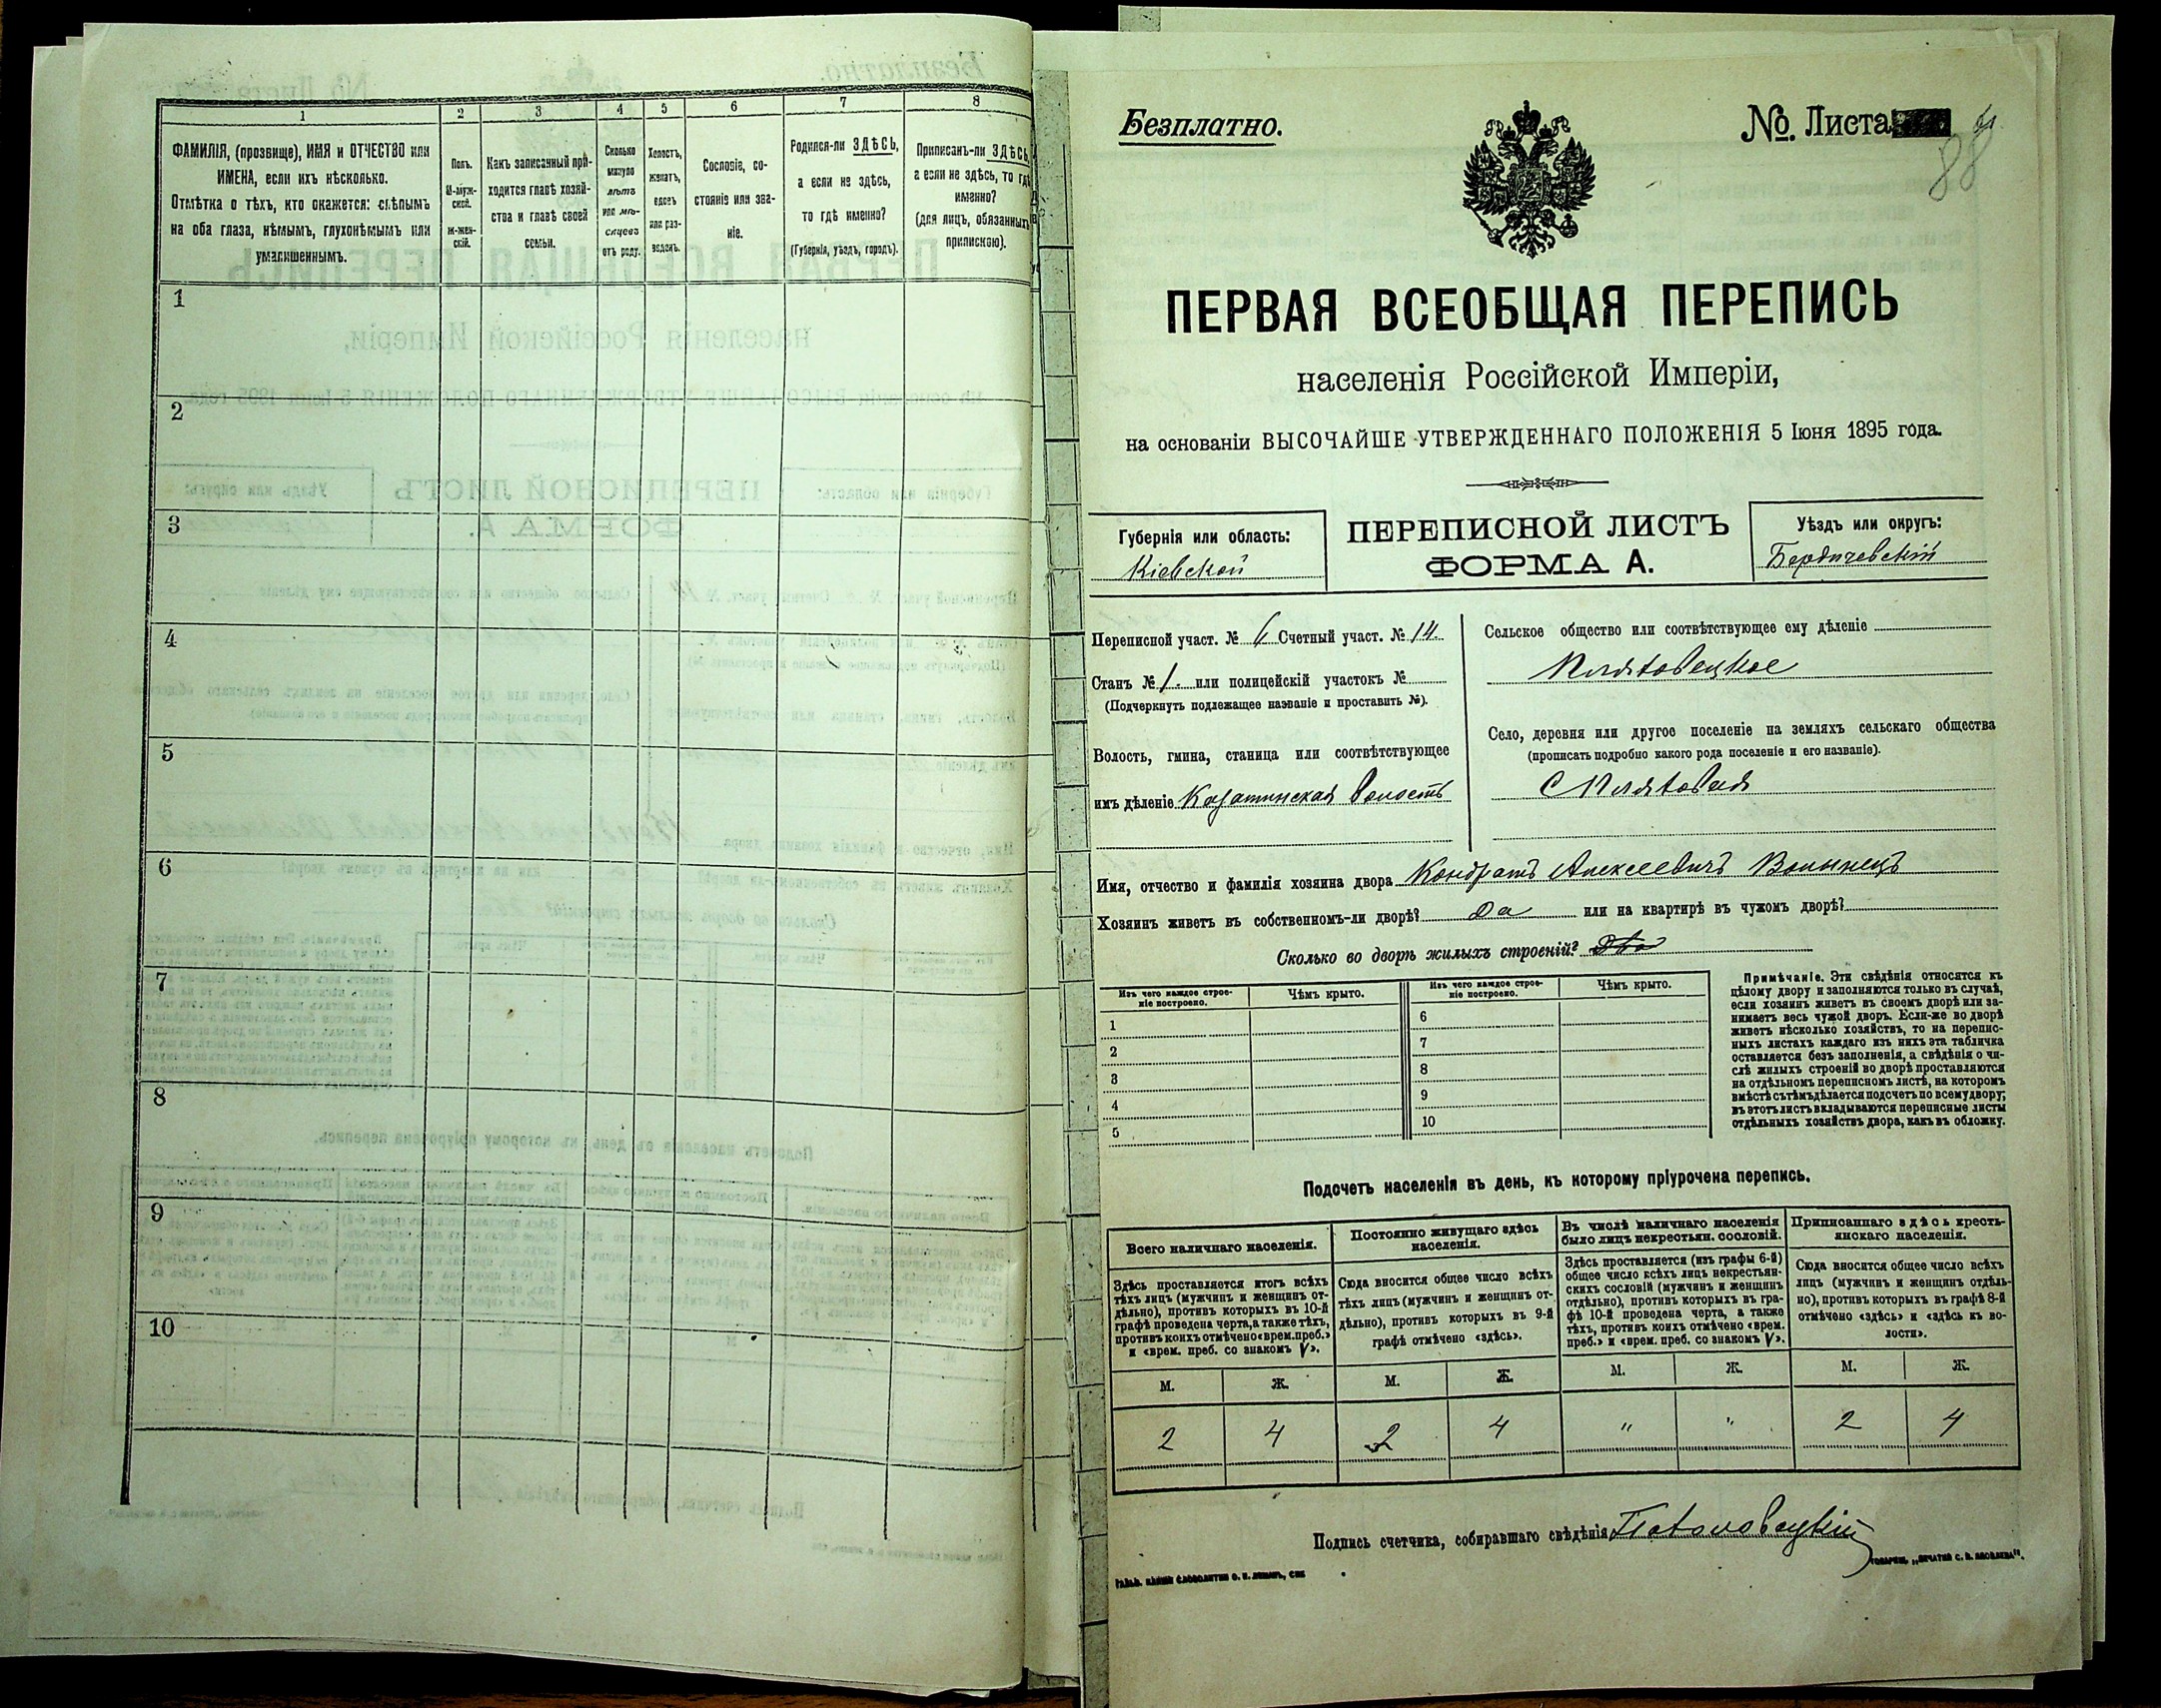 1 2 3 4 5 6 7 8
ФАМИЛІЯ, (прозвище), ИМЯ и ОТЧЕСТВО или
ИМЕНА, если ихъ нѣсколько.
Отмѣтка о тѣхъ, кто окажется: слѣпымъ
на оба глаза, нѣмымъ, глухонѣмымъ или
умалишеннымъ.
Полъ.
М-муж-
ской.
Ж-жен-
скій.
Какъ записанный при-
ходится главѣ хозяй-
ства и главѣ своей
семьи.
Сколько
минуло
лѣтъ
или мѣ-
сяцевъ
отъ роду.
Холостъ,
женатъ,
вдовъ
или раз-
веденъ.
Сословіе, со-
стояніе или зва-
ніе.
Родился-ли ЗДѢСЬ,
а если не здѣсь,
то гдѣ именно?
(Губернія, уѣздъ, городъ).
Приписанъ-ли ЗДѢСЬ,
а если не здѣсь, то гдѣ
именно?
(для лицъ, обязанныхъ
припискою).
1
2
3
4
5
6
7
8
9
10
Безплатно.
№. Листа
88
ПЕРВАЯ ВСЕОБЩАЯ ПЕРЕПИСЬ
населенія Россійской Имперіи,
на основаніи ВЫСОЧАЙШЕ УТВЕРЖДЕННАГО ПОЛОЖЕНІЯ 5 Іюня 1895 года.
Губернія или область:
Кіевской
ПЕРЕПИСНОЙ ЛИСТЪ
ФОРМА А.
Уѣздъ или округъ:
Бердичевскій
Переписной участ. № 6 Счетный участ. № 14.
Станъ № 1. или полицейскій участокъ №
(Подчеркнуть подлежащее названіе и проставить №).
Волость, гмина, станица или соотвѣтствующее
имъ дѣленіе Казатинская волость
Сельское общество или соотвѣтствующее ему дѣленіе
Село, деревня или другое поселеніе на земляхъ сельскаго общества
(прописать подробно какого рода поселеніе и его названіе).
Имя, отчество и фамилія хозяина двора Кондратъ Алексеевичъ Волынецъ
Хозяинъ живетъ въ собственномъ-ли дворѣ? Да или на квартирѣ въ чужомъ дворѣ?
Сколько во дворѣ жилыхъ строеній?
Изъ чего каждое строе-
ніе построено.
Чѣмъ крыто.
Изъ чего каждое строе-
ніе построено.
Чѣмъ крыто.
1 6
2 7
3 8
4 9
5 10
Примѣчаніе. Эти свѣдѣнія относятся къ
цѣлому двору и заполняются только въ случаѣ,
если хозяинъ живетъ въ своемъ дворѣ или за-
нимаетъ весь чужой дворъ. Если-же во дворѣ
живетъ нѣсколько хозяйствъ, то на перепис-
ныхъ листахъ каждаго изъ нихъ эта табличка
оставляется безъ заполненія, а свѣдѣнія о чи-
слѣ жилыхъ строеній во дворѣ проставляются
на отдѣльномъ переписномъ листѣ, на которомъ
вмѣстѣ съ тѣмъ дѣлается подсчетъ по всему двору;
въ этотъ листъ вкладываются переписные листы
отдѣльныхъ хозяйствъ двора, какъ въ обложку.
Подсчетъ населенія въ день, къ которому пріурочена перепись.
Всего наличнаго населенія.
Здѣсь проставляется итогъ всѣхъ
тѣхъ лицъ (мужчинъ и женщинъ от-
дѣльно), противъ которыхъ въ 10-й
графѣ проведена черта, а также тѣхъ,
противъ коихъ отмѣчено «врем. преб.»
и «врем. преб. со знакомъ V».
Постоянно живущаго здѣсь
населенія.
Сюда вносится общее число всѣхъ
тѣхъ лицъ (мужчинъ и женщинъ от-
дѣльно), противъ которыхъ въ 9-й
графѣ отмѣчено «здѣсь».
Въ числѣ наличнаго населенія
было лицъ некрестьян. сословій.
Здѣсь проставляется (изъ графы 6-й)
общее число всѣхъ лицъ некрестьян-
скихъ сословій (мужчинъ и женщинъ
отдѣльно), противъ которыхъ въ гра-
фѣ 10-й проведена черта, а также
тѣхъ, противъ коихъ отмѣчено «врем.
преб.» и «врем. преб. со знакомъ V».
Приписаннаго здѣсь кресть-
янскаго населенія.
Сюда вносится общее число всѣхъ
лицъ (мужчинъ и женщинъ отдѣль-
но), противъ которыхъ въ графѣ 8-й
отмѣчено «здѣсь» и «здѣсь къ во-
лости».
М. Ж. М. Ж. М. Ж. М. Ж.
2 4 2 4 " " 2 4
Подпись счетчика, собиравшаго свѣдѣнія